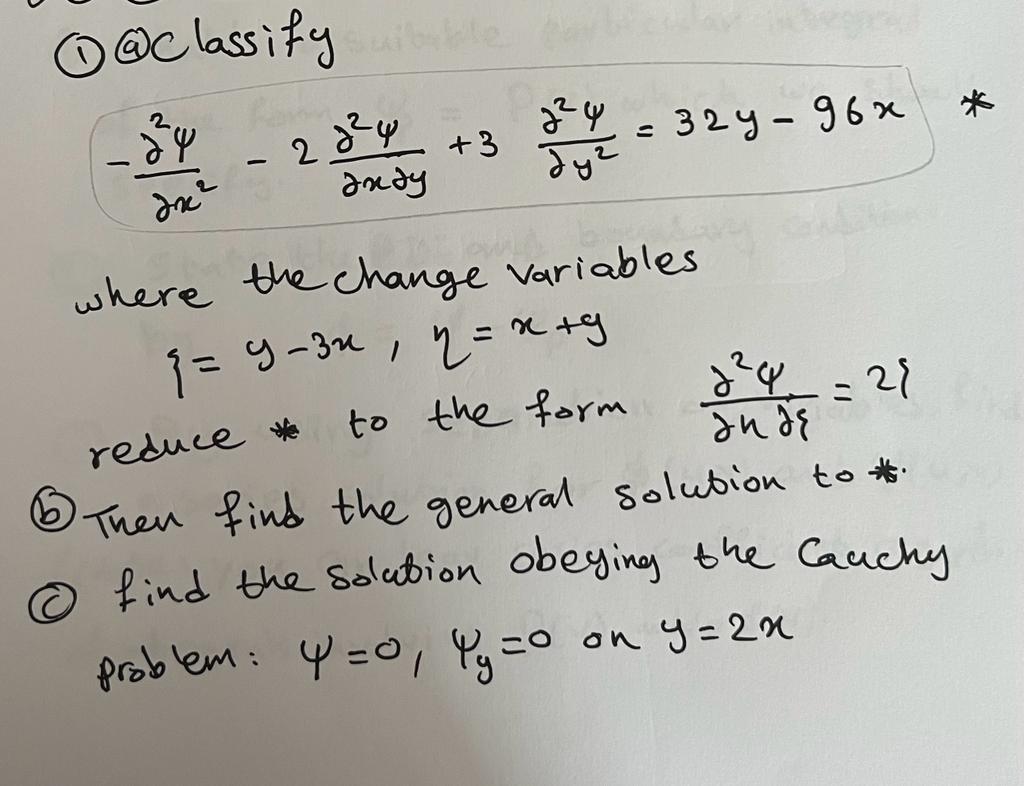 ① ⓐ Classify
-∂²ψ/∂x² - 2 ∂²ψ/∂x∂y + 3 ∂²ψ/∂y² = 32y - 96x *
where the change variables
ξ = y - 3x , η = x + y
reduce * to the form ∂²ψ/∂η∂ξ = 2ξ
ⓑ Then find the general solution to *.
ⓒ find the solution obeying the Cauchy
problem: ψ = 0, ψ_y = 0 on y = 2x